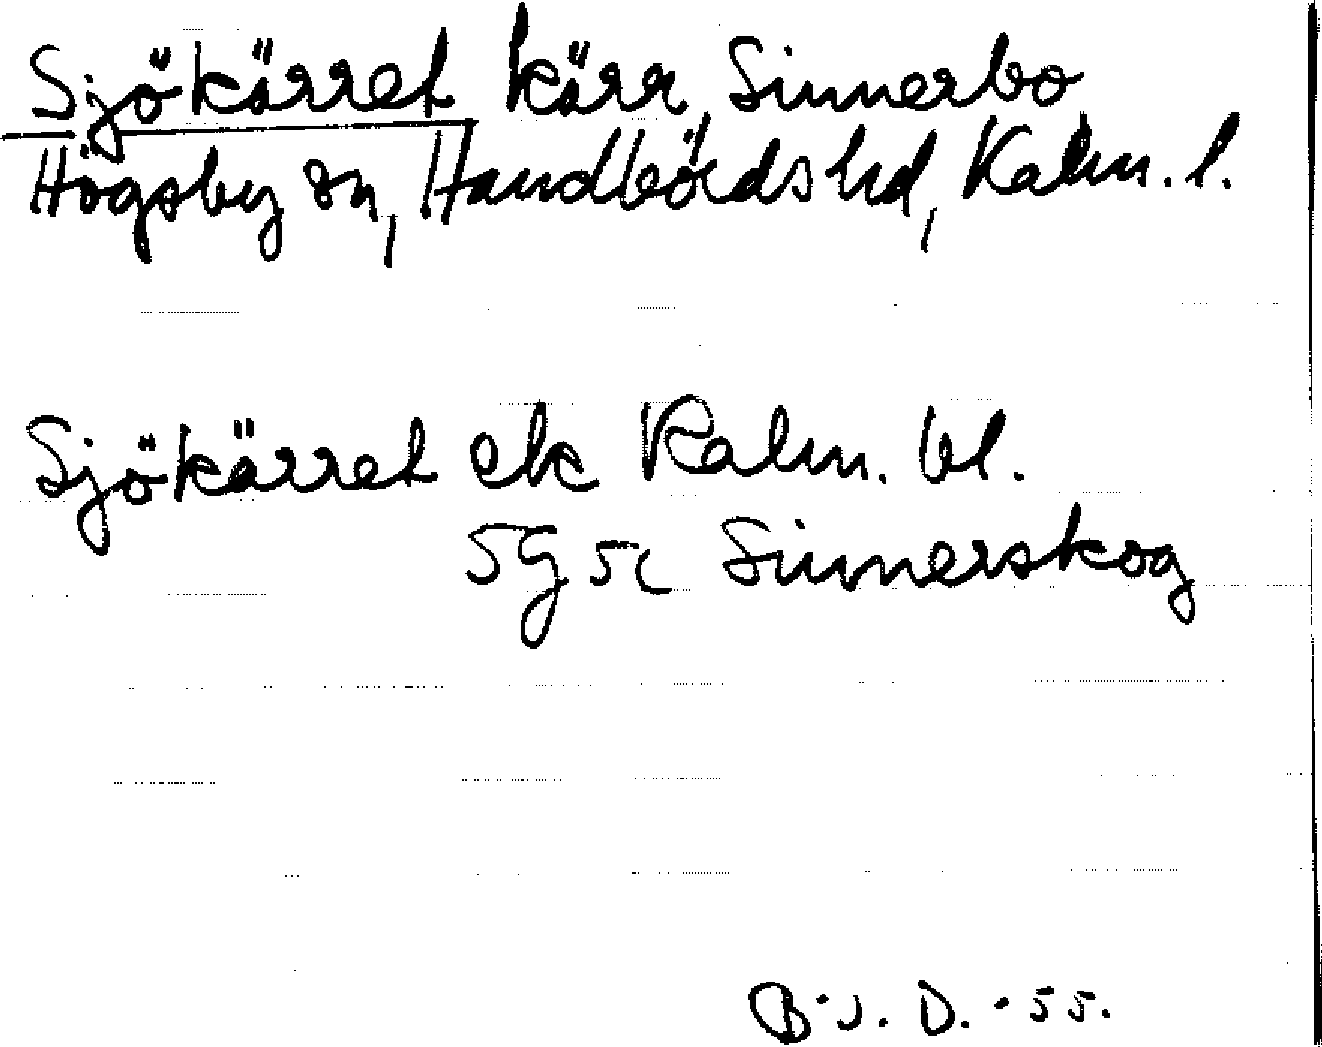 Sjökärret kärr, Sinnerbo
Högsby sn, Handbörds hd, Kalm. l.
Sjökärret ek Kalm. bl.
5g 5c Sinnerskog
B. J. D. -55.